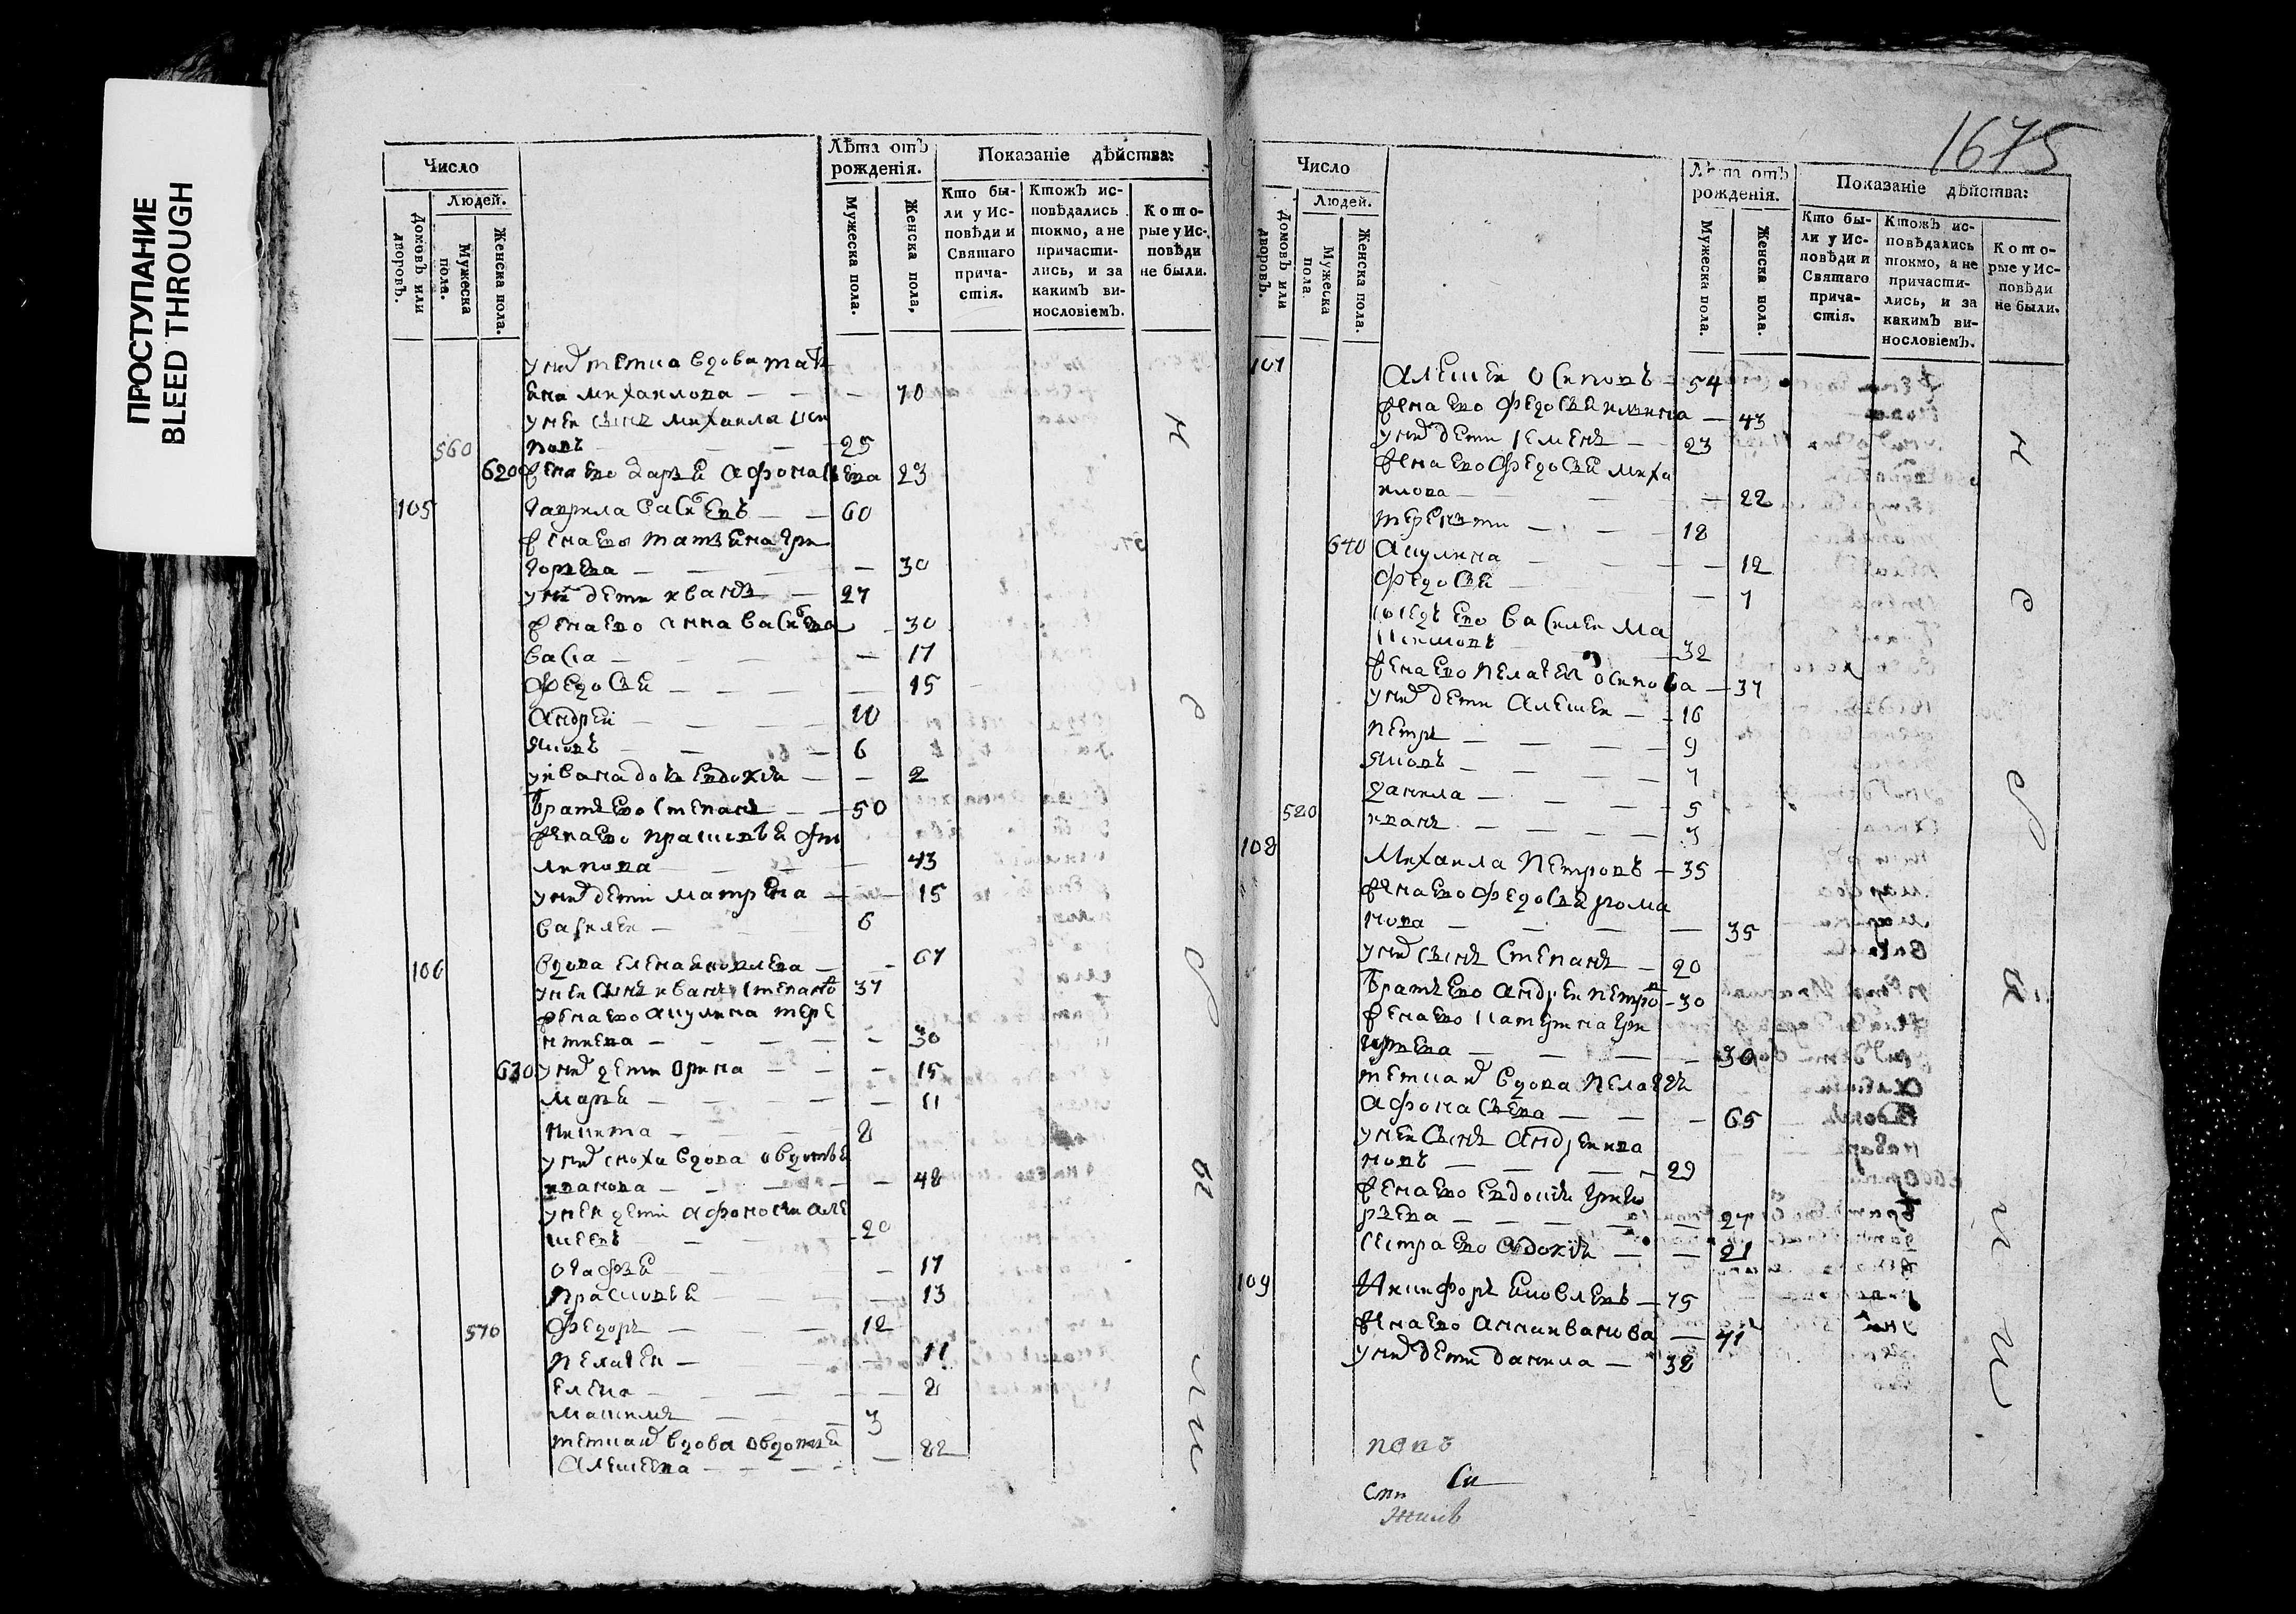 ПРОСТУПАНИЕ
BLEED THROUGH
Число
Людей.
Домовъ или дворовъ.
Мужеска пола.
Женска пола.
Лѣта отъ рожденія.
Мужеска пола.
Женска пола.
Показаніе дѣйства:
Кто были у Исповѣди и Святаго причастія.
Ктожъ исповѣдались токмо, а не причастились, и за какимъ винословіемъ.
Которые у Исповѣди не были.
вдова
ена михаилова — 70
михаила
560 повъ — 25
620 жена ево дарья афонасьева 23
105 гаврила васильевъ — 60
жена ево татьяна гри
горьева — 30
у них дети иванъ — 27
жена ево анна васильева — 30
васса — 17
федосья — 15
андрей — 10
яковъ — 6
у ивана дочь евдокия — 2
братъ ево степанъ — 50
жена ево прасковья фи
липова — 43
у них дети матрена — 15
василей — 6
106 вдова елена яковлева — 67
у неи сынъ иванъ степановъ 37
жена ево акулина тере
нтиева — 30
630 у них дети орина — 15
марья — 11
никита — 8
у них сноха вдова овдотья
иванова — 48
у неи дети афонасеи але
ксеевъ — 20
огафья — 17
прасковья — 13
570 федоръ — 12
пелагея — 11
елена — 2
максимъ — 3
вдова овдотья
алексеева — 82
1675
Число
Людей.
Домовъ или дворовъ.
Мужеска пола.
Женска пола.
Лѣта отъ рожденія.
Мужеска пола.
Женска пола.
Показаніе дѣйства:
Кто были у Исповѣди и Святаго причастія.
Ктожъ исповѣдались токмо, а не причастились, и за какимъ винословіемъ.
Которые у Исповѣди не были.
107 алексеи осиповъ — 54
жена ево федосья — 43
у них дети семенъ — 23
жена ево федосья миха
илова — 22
терентии — 18
640 акулина — 12
федосья — 7
соседъ ево василеи ма
ксимовъ — 32
жена ево пелагея осипова — 37
у них дети алексеи — 16
петръ — 9
яковъ — 7
данила — 5
580 иванъ — 3
108 михаила петровъ — 35
жена ево федосья рома
нова — 35
у них сынъ степанъ — 20
братъ ево андреи петровъ — 30
жена ево катерина гри
горьева — 30
вдова пелагея
афонасьева — 65
у неи сынъ андреи ива
новъ — 29
жена ево евдокия григо
рьева — 27
сестра ево авдокия — 21
109 никифоръ яковлевъ — 75
жена ево анна иванова — 71
у них дети данила — 38
попъ